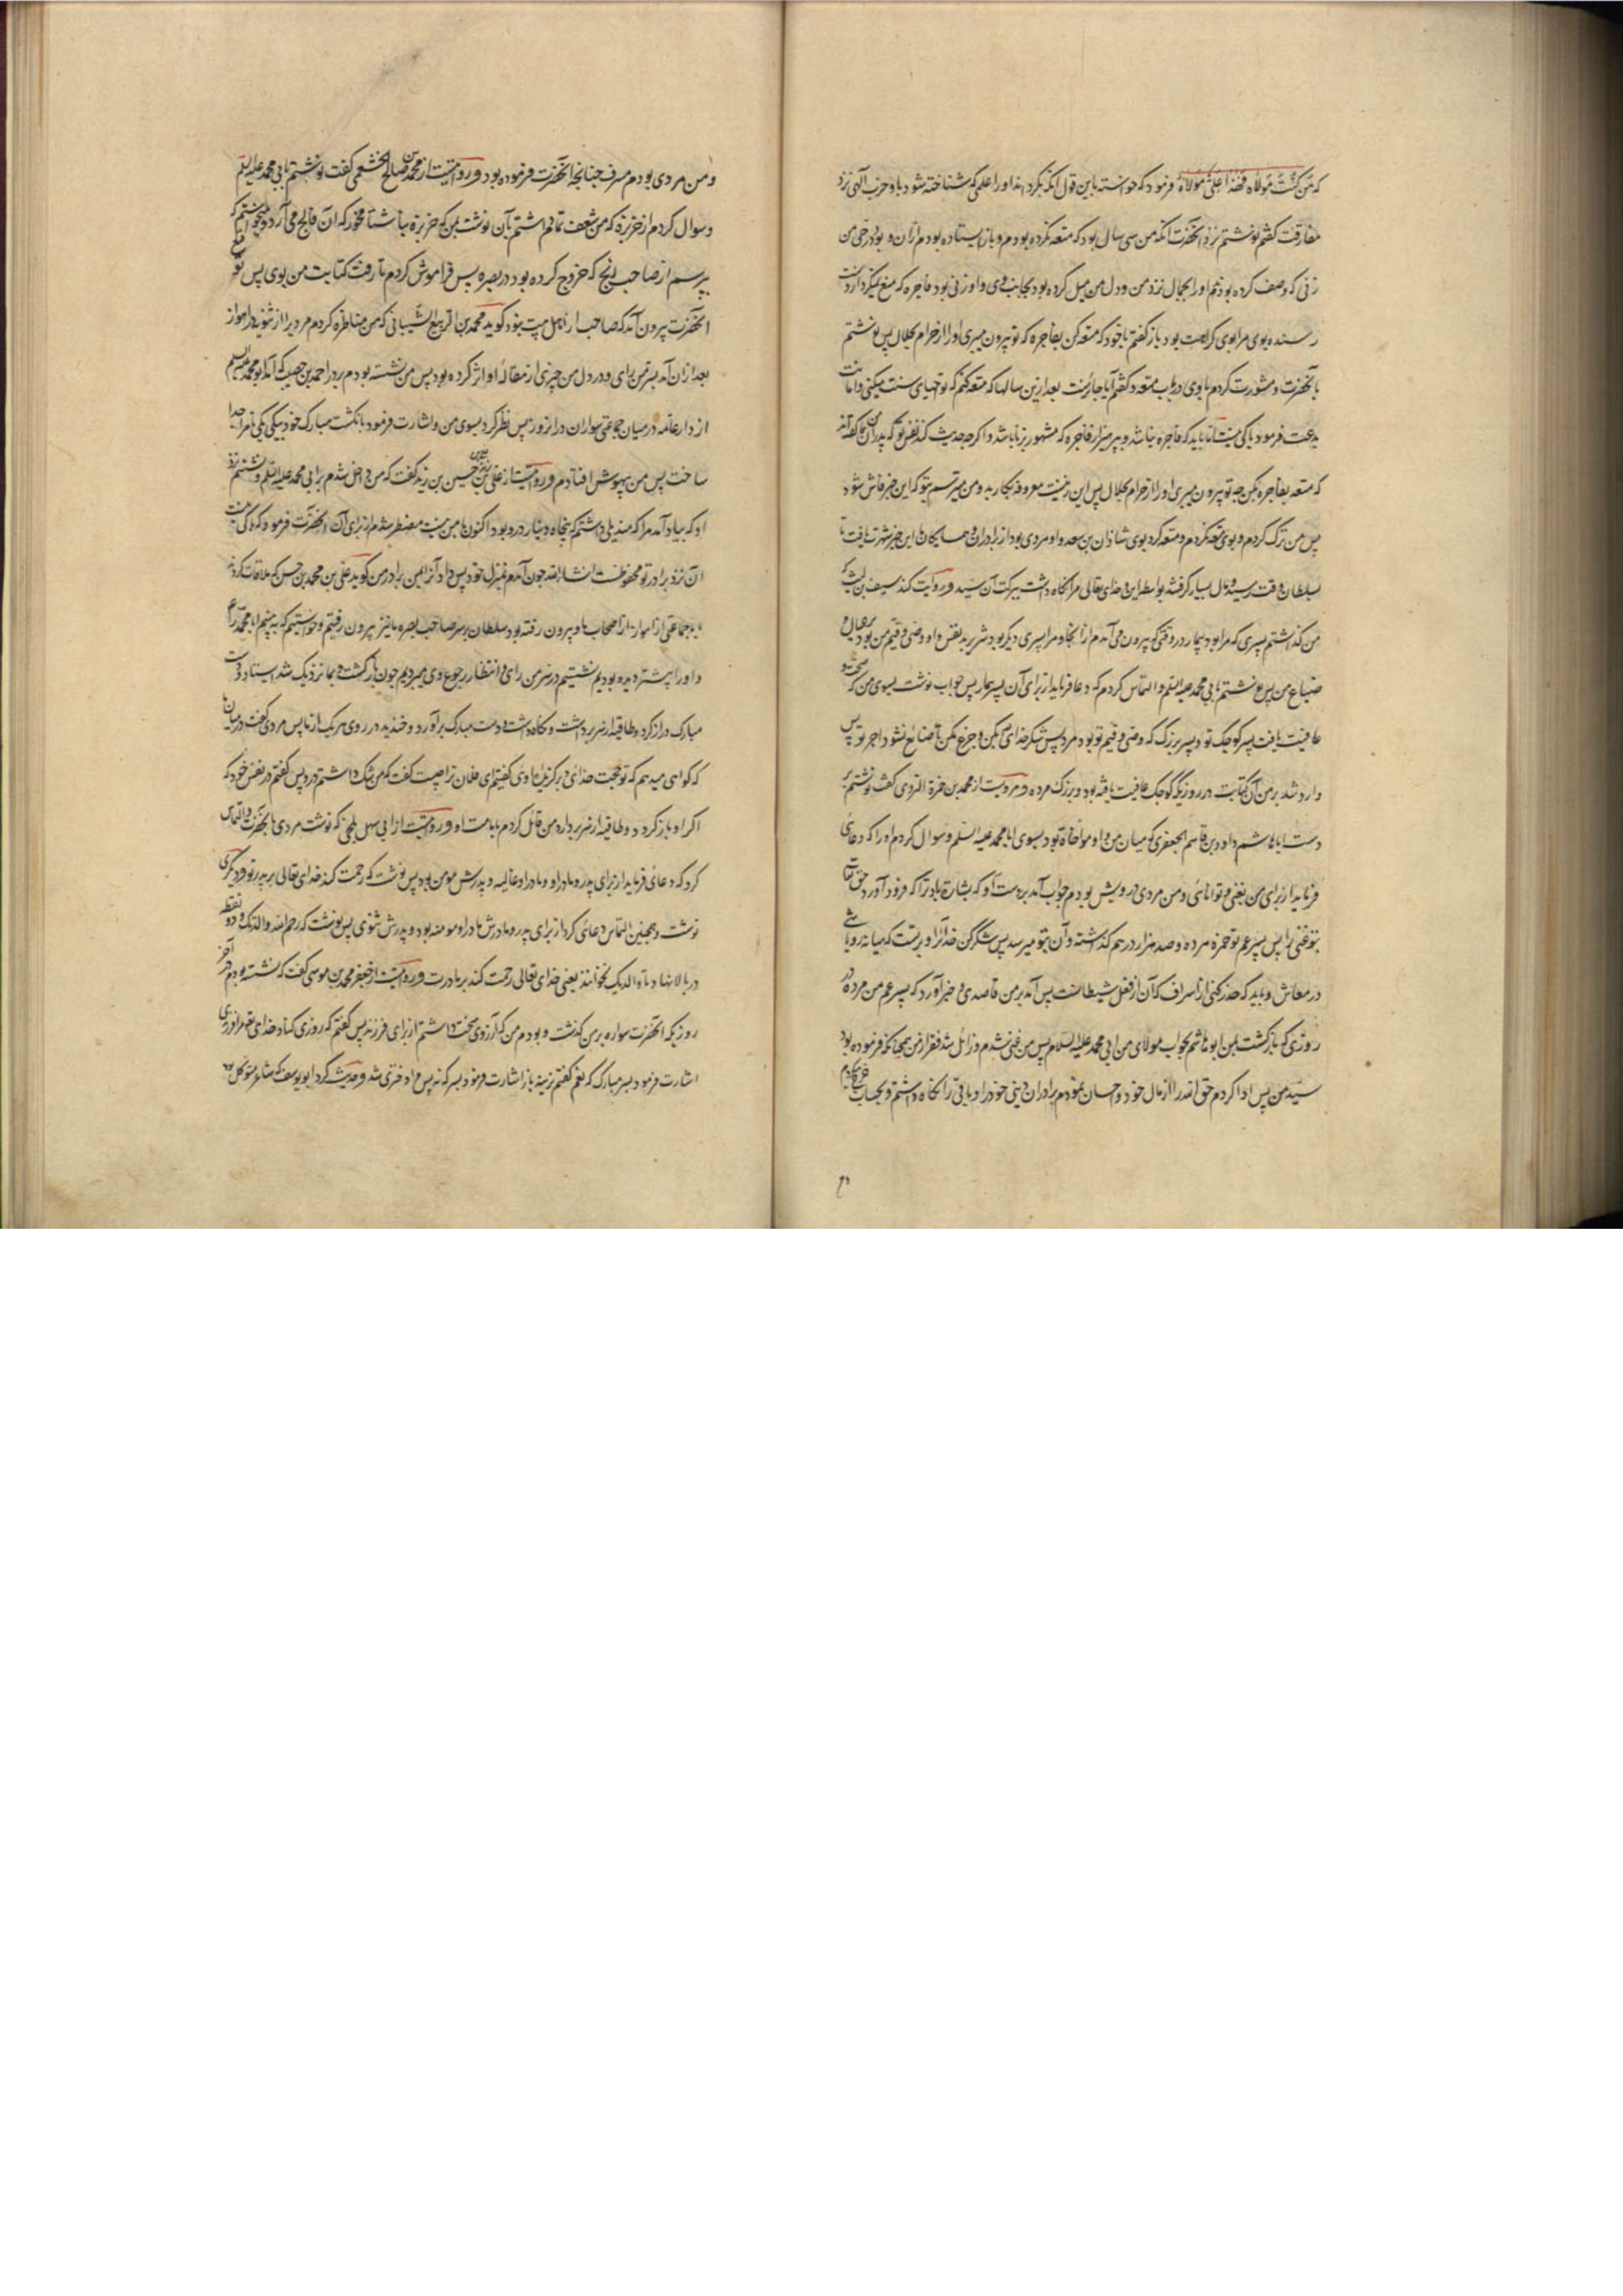 که من کنت مولاه فهذا علی مولاه فرمود که خواسته باین قول آنکه بگرداند او را علمی که شناخته شود باو حزب الهی نزد
مفارقت گفت نوشتم نزد آنحضرت آنکه من سی سال بود که متعه نکرده بودم و باز ایستاده بودم از آن و بود در حی من
زنی که وصف کرده بودند او را بجمال نزد من و دل من میل کرده بود بجانب وی و او زنی بود فاجره که منع نمیکرد از دست
رسنده بوی مرا بوی کراهت بود باز گفتم با خود که متعه کن بفاجره که تو بیرون میبری او را از حرام بحلال پس نوشتم
بآنحضرت و مشورت کردم با وی در باب متعه و گفتم آیا جایزست بعد ازین سالها که متعه کنم که تو احیای سنت میکنی و اماتت
بدعت فرمود باکی نیست اما باید که فاجره نباشد و بپرهیز از فاجره که مشهور بزنا باشد و اگرچه حدیث کند نفس تو که پدران من گفته‌اند
که متعه بفاجره بکن چه تو بیرون میبری او را از حرام بحلال پس این زنیست معروفه بکار بد و من میترسم بتو که این خبر فاش شود
پس من ترک کردم و بوی متعه نکردم و متعه کرد بوی شاذان بن سعد و او مردی بود از برادران و همسایگان ما این خبر شهرت یافت تا
بسلطان وقت رسید و مال بسیار گرفتند بواسطه این و خدای تعالی مرا نگاه داشت ببرکت آن سید و روایت کند سیف بن لیث که
من گذاشتم پسری که مرا بود بیمار در وقتی که بیرون می‌آمدم از آنجا و مرا پسری دیگر بود بنفس و او وصی و قیم من بود بر عیال و
ضیاع من پس نوشتم بابی محمد علیه السلم و التماس کردم که دعا فرماید از برای آن پسر بیمار پس جواب نوشت بسوی من که صحت و
عافیت یافت پسر کوچک تو و پسر بزرگ که وصی و قیم تو بود مرد پس شکر خدای بکن و جزع مکن تا ضایع نشود اجر تو پس
وارد شد بر من آن کتابت در روزیکه کوچک عافیت یافته بود و بزرگ مرده و مرویست از محمد بن حمزة الدوری گفت نوشتم بر
دست ابا هاشم داود بن قاسم الجعفری که میان من و او مواخاة بود بسوی ابا محمد علیه السلم و سوال کردم او را که دعای
فرماید از برای من بغنی و توانائی و من مردی درویش بودم جواب آمد بر دست او که بشارة باد ترا که فرود آورد حق تعالی
بتو غنی را پس پسر عم تو حمزه مرده و صد هزار درهم گذاشته و آن بتو میرسد پس شکر کن خدا را و بر تست که میانه رو باشی
در معاش و باید که حذر کنی از اسراف که آن از فعل شیطانست پس آمد بر من قاصدی و خبر آورد که پسر عم من مرده در
روزی که بازگشت بمن ابو هاشم بجواب مولای من ابی محمد علیه السلام پس من غنی شدم و زائل شد فقر از من همچنانکه فرموده بود
سید من پس ادا کردم حق الله را از مال خود و احسان نمودم برادران دینی خود را و باقی را نگاه داشتم و بحساب خرج کردم
و من مردی بودم مسرف چنانچه آنحضرت فرموده بود و روایتست از محمد بن صالح الخثعمی گفت نوشتم بابی محمد علیه السلم
و سوال کردم از خربزه که من شعف تمام داشتم بآن نوشت بمن که خربزه بناشتا مخور که آن فالج می‌آرد و میخواستم که
بپرسم از صاحب زنج که خروج کرده بود در بصره پس فراموش کردم تا رفت کتابت من بوی پس توقیع
آنحضرت بیرون آمد که صاحب از اهل بیت نبود گوید محمد بن الربیع الشیبانی که من مناظره کردم مردیرا از ثنویه در اهواز
بعد از آن آمدم بسر من رای و در دل من چیزی از مقاله او اثر کرده بود پس من نشسته بودم بر در احمد بن خصیب که آمد ابو محمد علیه السلم
از دار عامه در میان جماعتی سواران در آن روز پس نظر کرد بسوی من و اشارت فرمود بانگشت مبارک خود بیکی یکی فرا جدا
ساخت پس من بیهوش افتادم و روایتست از علی بن زید بن حسین بن زید گفت که من داخل شدم بر ابی محمد علیه السلم و نشستم نزد
او که بیاد آمد مرا که مندیلی داشتم که پنجاه دینار درو بود اکنون با من نیست مضطر شدم از برای آن آنحضرت فرمود که باکی نیست
آن نزد برادر تو محفوظست انشاالله چون آمدم بمنزل خود پس داد آنرا بمن برادر من گوید علی بن محمد بن حسن که ملاقات کردند
با ما جماعتی از اهواز از اصحاب ما و بیرون رفته بود سلطان بر سر صاحب بصره ما نیز بیرون رفتیم و خواستیم که ببینیم ابا محمد را
و او را پیشتر دیده بودیم نشستیم در سر من رای و انتظار رجوع وی میبردیم چون بازگشت و بما نزدیک شد ایستاد و دست
مبارک دراز کرد و طاقیه از سر برداشت و نگاه داشت و دست مبارک برآورد و خندید در روی هر یک از ما پس مردی گفت در میان ما
که گواهی میدهم که تو حجت خدائی و برگزیده وی گفتیم ای فلان ترا چیست گفت که من شک داشتم درو پس گفتم در نفس خود که
اگر او بازگردد و طاقیه از سر بردارد من قائل گردم بامامت او و روایتست از ابی سهل بلخی که نوشت مردی بآنحضرت و التماس
کرد که دعای فرماید از برای پدر و مادر او و مادر او غالیه و پدرش مومن بود پس نوشت که رحمت کند خدای تعالی بر پدر تو و دیگری
نوشت و همچنین التماس دعای کرد از برای پدر و مادرش مادر او مومنه بود و پدرش ثنوی پس نوشت که رحم الله والدتک و دو نقطه
در بالا نهاد تا والدیک نخوانند یعنی خدای تعالی رحمت کند بر مادرت و روایتست از جعفر بن محمد بن موسی گفت که نشسته بودم در آخر
روزیکه آنحضرت سواره بر من گذشت و بودم من که آرزوی سخت داشتم از برای فرزند پس گفتم که روزی کناد خدای تعالی مرا فرزندی
اشارت فرمود بسر مبارک که نعم گفتم نرینه باز اشارت فرمود بسر که نه پس مرا دختری شد و حدیث کرد ابو یوسف که شاعر متوکل بود